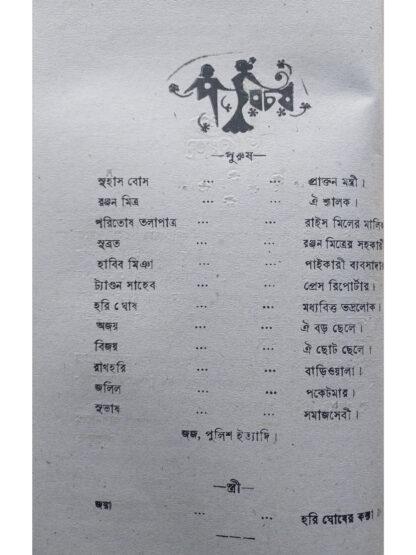 পরিচয়
—পুরুষ—
সুহাস বোস ... ... প্রাক্তন মন্ত্রী।
রঞ্জন মিত্র ... ... ঐ শ্যালক।
পরিতোষ তলাপাত্র ... ... রাইস মিলের মালিক
সুব্রত ... ... রঞ্জন মিত্রের সহকারী
হাবিব মিঞা ... ... পাইকারী ব্যবসাদার
ট্যাণ্ডন সাহেব ... ... প্রেস রিপোর্টার।
হরি ঘোষ ... ... মধ্যবিত্ত ভদ্রলোক।
অজয় ... ... ঐ বড় ছেলে।
বিজয় ... ... ঐ ছোট ছেলে।
রাখহরি ... ... বাড়িওয়ালা।
জলিল ... ... পকেটমার।
সুভাষ ... ... সমাজসেবী।
জজ, পুলিশ ইত্যাদি।
—স্ত্রী—
জয়া ... ... হরি ঘোষের কন্যা।
———